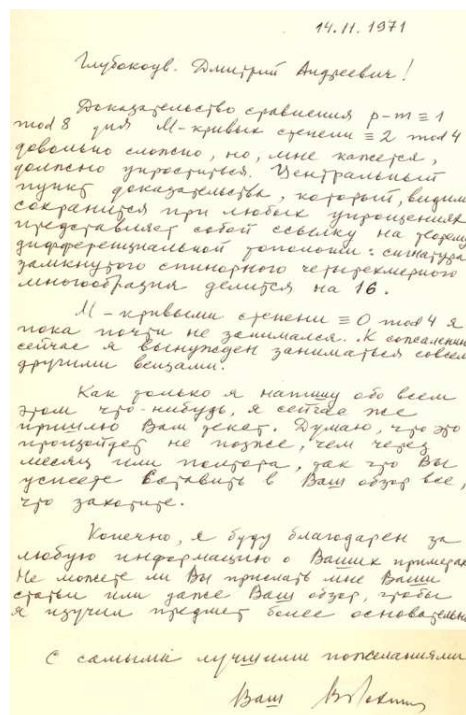 14.11.1971
Глубокоув. Дмитрий Андреевич!
Доказательство сравнения p-m ≡ 1
mod 8 для М-кривых степени ≡ 2 mod 4
довольно сложно, но, мне кажется,
должно упроститься. Центральный
пункт доказательства, который, видимо
сохранится при любых упрощениях
представляет собой ссылку на теорему
дифференциальной топологии: сигнатура
замкнутого спинорного четырехмерного
многообразия делится на 16.
М-кривыми степени ≡ 0 mod 4 я
пока почти не занимался. К сожалению
сейчас я вынужден заниматься совсем
другими вещами.
Как только я напишу обо всем
этом что-нибудь, я сейчас же
пришлю Вам текст. Думаю, что это
произойдет не позже, чем через
месяц или полтора, так что Вы
успеете вставить в Ваш обзор все,
что захотите.
Конечно, я буду благодарен за
любую информацию о Ваших примерах
Не можете ли Вы прислать мне Ваши
статьи или даже Ваш обзор, чтобы
я изучил предмет более основательно
С самыми лучшими пожеланиями
Ваш